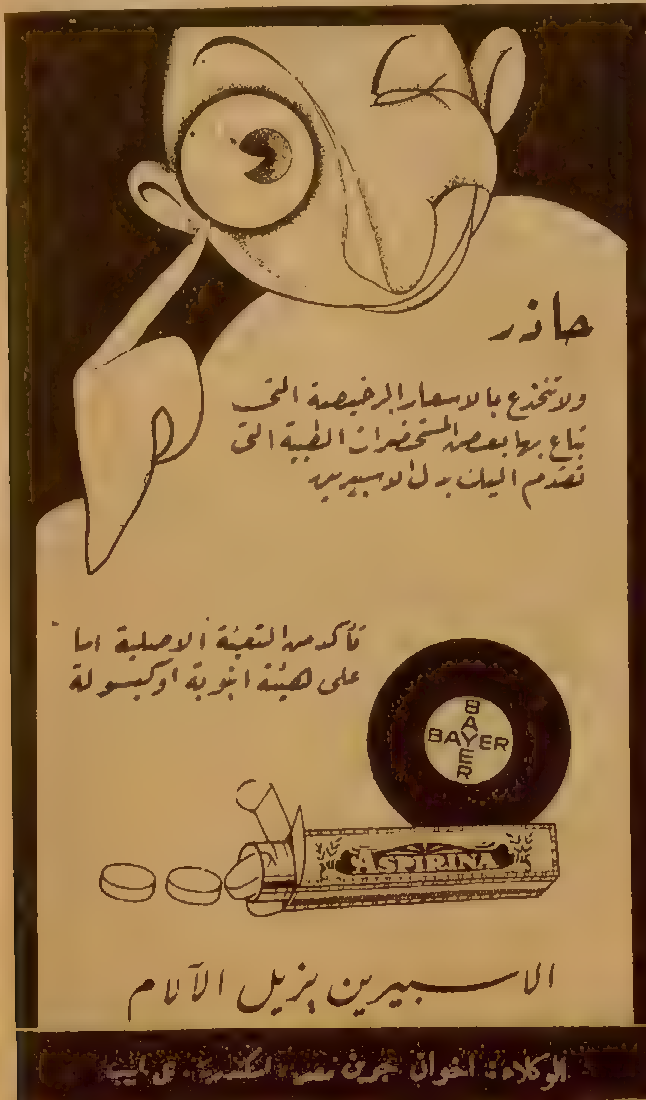 حاذر
ولا تنخدع بالاسعار الرخيصة التى
تباع بها بعض المستحضرات الطبية التى
تقدم اليك بدل الاسبيرين
تأكد من التعبئة الاصلية اما
على هيئة انبوبة او كبسولة
BAYER
BAYER
ASPIRINA
الاسبيرين يزيل الآلام
الوكلاء: اخوان